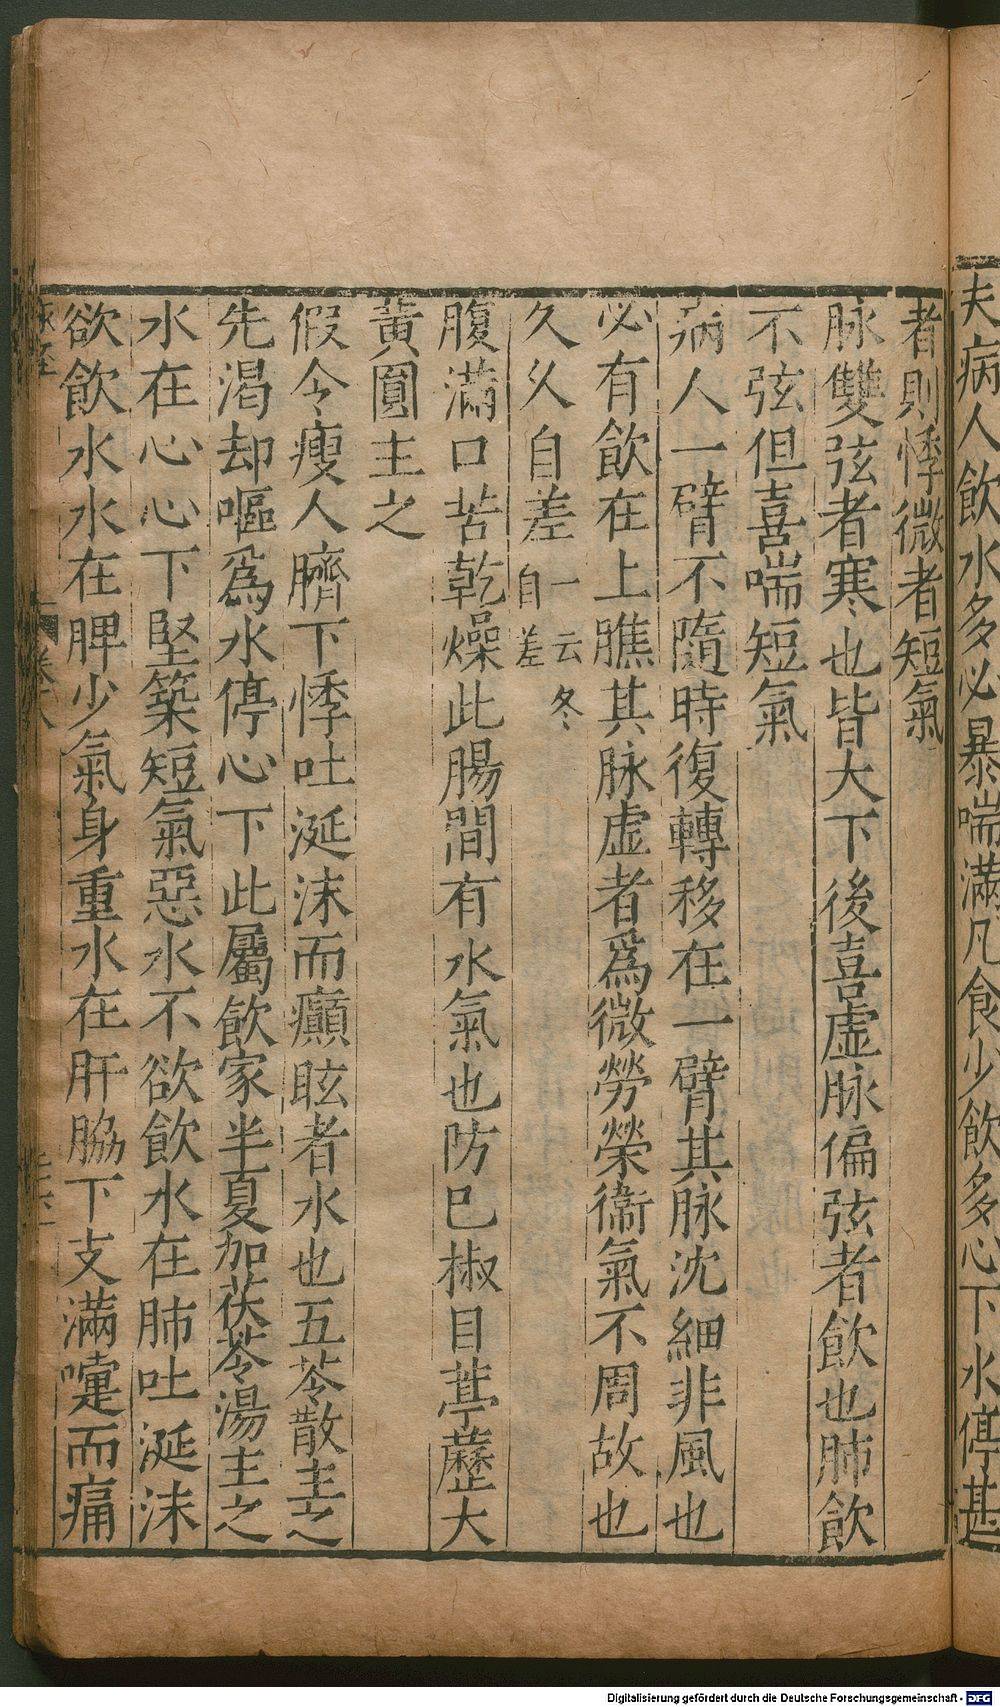 夫病人飲水多必暴喘滿凡食少飲多心下水停甚
者則悸微者短氣
脉雙弦者寒也皆大下後喜虛脉偏弦者飲也肺飲
不弦但喜喘短氣
病人一臂不隨時復轉移在一臂其脉沈細非風也
必有飲在上膲其脉虛者爲微勞榮衞氣不周故也
久久自差一云冬自差
腹滿口苦乾燥此腸間有水氣也防巳椒目葶藶大
黃圓主之
假令瘦人臍下悸吐涎沫而癲眩者水也五苓散主之
先渴却嘔爲水停心下此屬飲家半夏加茯苓湯主之
水在心心下堅築短氣惡水不欲飲水在肺吐涎沫
欲飲水水在脾少氣身重水在肝脇下支滿嚏而痛
脉經
卷八
Digitalisierung gefördert durch die Deutsche Forschungsgemeinschaft - DFG